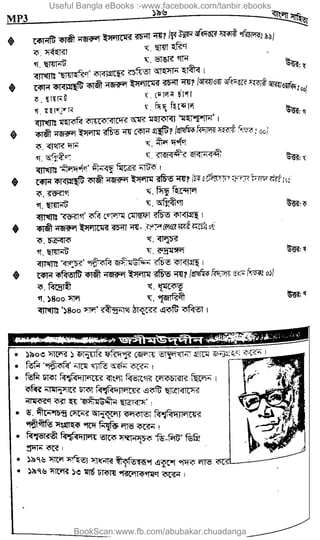 Useful Bangla eBooks :-www.facebook.com/tanbir.ebooks
MP3
১৯৬
বাংলা সাহিত্য
কোনটি কাজী নজরুল ইসলামের রচনা নয়?
ক. সর্বহারা
খ. ছায়া হরিণ
গ. ছায়ানট
ঘ. ভাঙার গান
উত্তর: খ
ব্যাখ্যা: 'ছায়াহরিণ' কাব্যগ্রন্থের রচয়িতা আহসান হাবীব।
কোন কাব্যগ্রন্থটি কাজী নজরুল ইসলামের রচনা নয়?
গ. ছায়ানট
ঘ. সিন্ধু হিন্দোল
ব্যাখ্যা: মহাকবি কায়কোবাদের অমর মহাকাব্য 'মহাশ্মশান'।
কাজী নজরুল ইসলাম রচিত নয় কোন গ্রন্থটি?
ক. ব্যথার দান
খ. নীল দর্পণ
গ. অগ্নিবীণা
ঘ. রাজবন্দী'র জবানবন্দী
উত্তর: খ
ব্যাখ্যা: 'নীলদর্পণ' দীনবন্ধু মিত্রের নাটক।
কোন কাব্যগ্রন্থটি কাজী নজরুল ইসলাম রচিত নয়?
ক. রক্তরাগ
খ. সিন্ধু হিন্দোল
গ. ছায়ানট
ঘ. অগ্নিবীণা
উত্তর: ক
ব্যাখ্যা: 'রক্তরাগ' কবি গোলাম মোস্তফা রচিত কাব্যগ্রন্থ।
কাজী নজরুল ইসলামের রচনা নয়-
ক. চক্রবাক
খ. বালুচর
গ. ছায়ানট
ঘ. রুদ্রমঙ্গল
উত্তর: খ
ব্যাখ্যা: 'বালুচর' পল্লীকবি জসীমউদ্দীন রচিত কাব্যগ্রন্থ।
কোন কবিতাটি কাজী নজরুল ইসলাম রচিত নয়?
ক. বিদ্রোহী
খ. ধূমকেতু
গ. ১৪০০ সাল
ঘ. পূজারিণী
উত্তর: গ
ব্যাখ্যা: '১৪০০ সাল' রবীন্দ্রনাথ ঠাকুরের একটি কবিতা।
জসীমউদদীন
• ১৯০৩ সালের ১ জানুয়ারি ফরিদপুর জেলায় তাম্বুলখানা গ্রামে জন্মগ্রহণ করেন।
• তিনি 'পল্লীকবি' নামে খ্যাতি অর্জন করেন।
• তিনি ঢাকা বিশ্ববিদ্যালয়ের বাংলা বিভাগের লেকচারার ছিলেন।
কবির নামানুসারে ঢাকা বিশ্ববিদ্যালয়ের একটি ছাত্রাবাসের
নামকরণ করা হয় 'জসীমউদ্দীন ছাত্রাবাস'।
• ড. দীনেশচন্দ্র সেনের আনুকূল্যে কলকাতা বিশ্ববিদ্যালয়ের
পল্লীগীতি সংগ্রাহক পদে নিযুক্তি লাভ করেন।
• বিশ্বভারতী বিশ্ববিদ্যালয় তাকে সম্মানসূচক 'ডি-লিট' ডিগ্রি
প্রদান করে।
• ১৯৭৬ সালে সাহিত্য সাধনার স্বীকৃতিস্বরূপ একুশে পদক লাভ করেন
• ১৯৭৬ সালের ১৩ মার্চ ঢাকায় পরলোকগমণ করেন।
BookScan:www.fb.com/abubakar.chuadanga